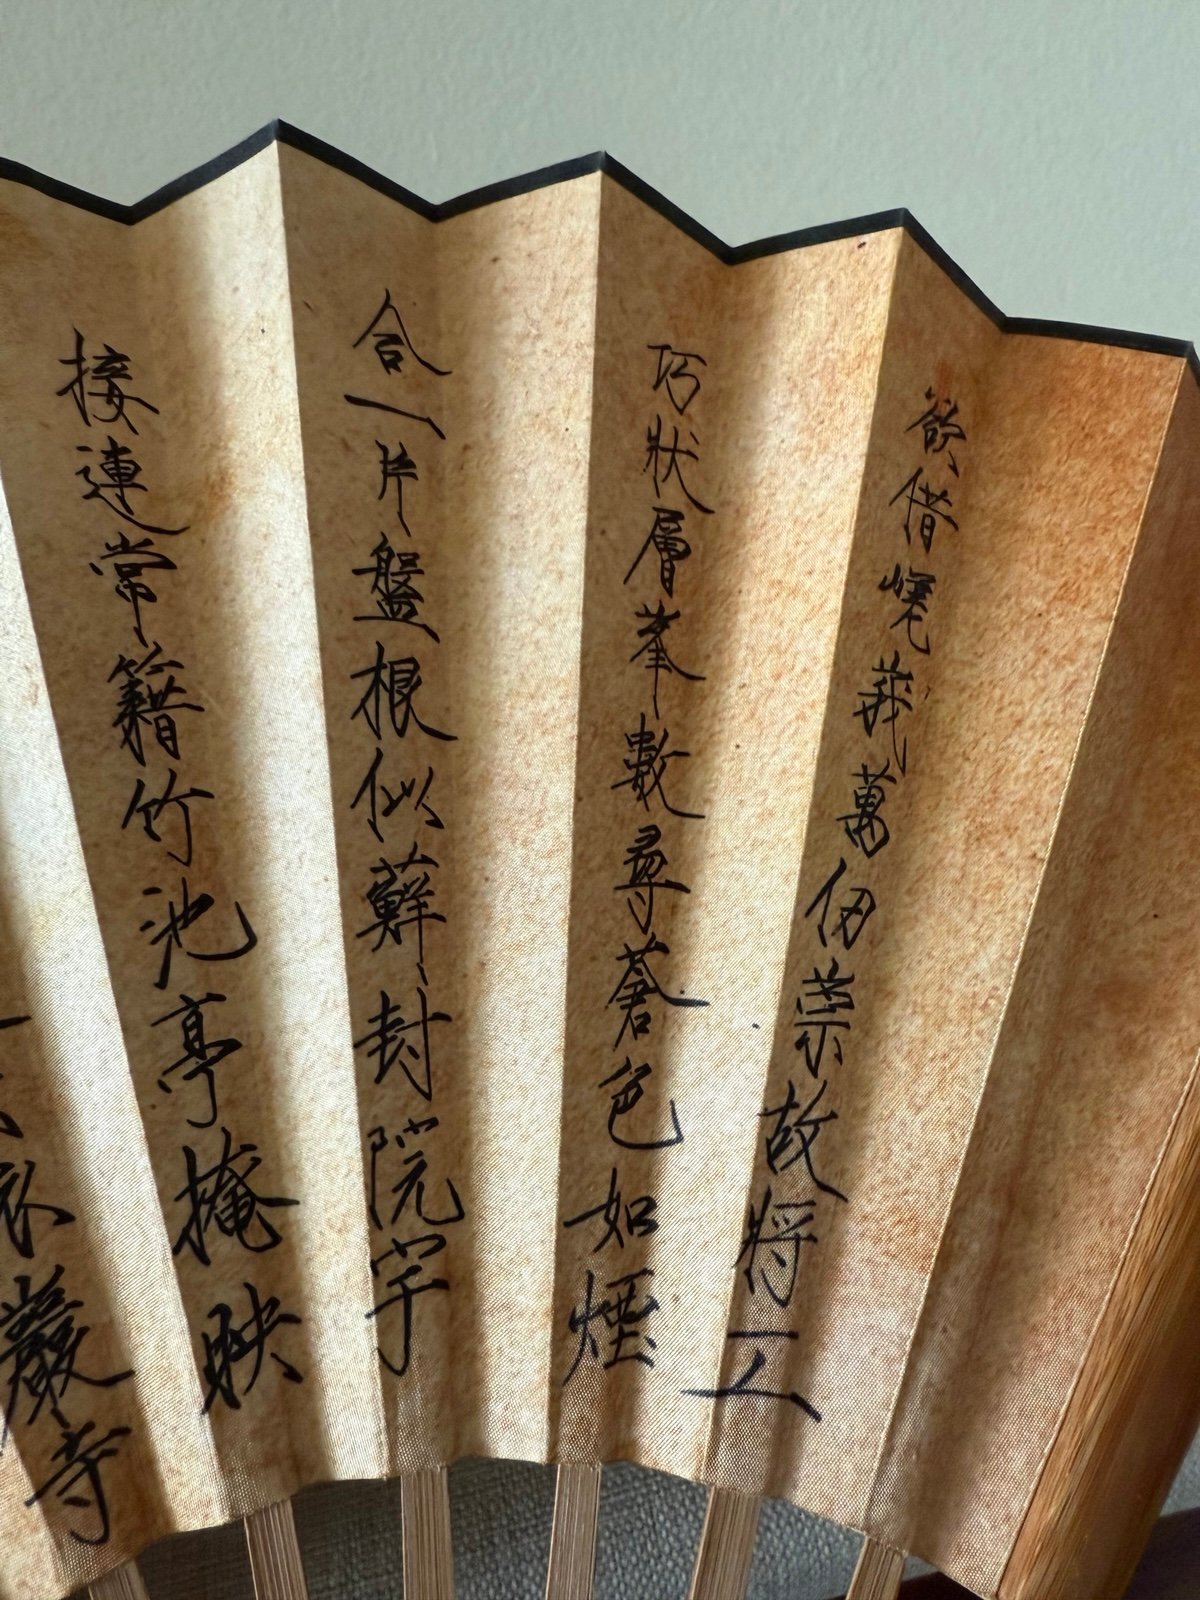 欲借嶢峩萬仞崇故將工
巧狀層峯數尋蒼色如煙
合一片盤根似蘚封院宇
接連常籍竹池亭掩映
巖寺